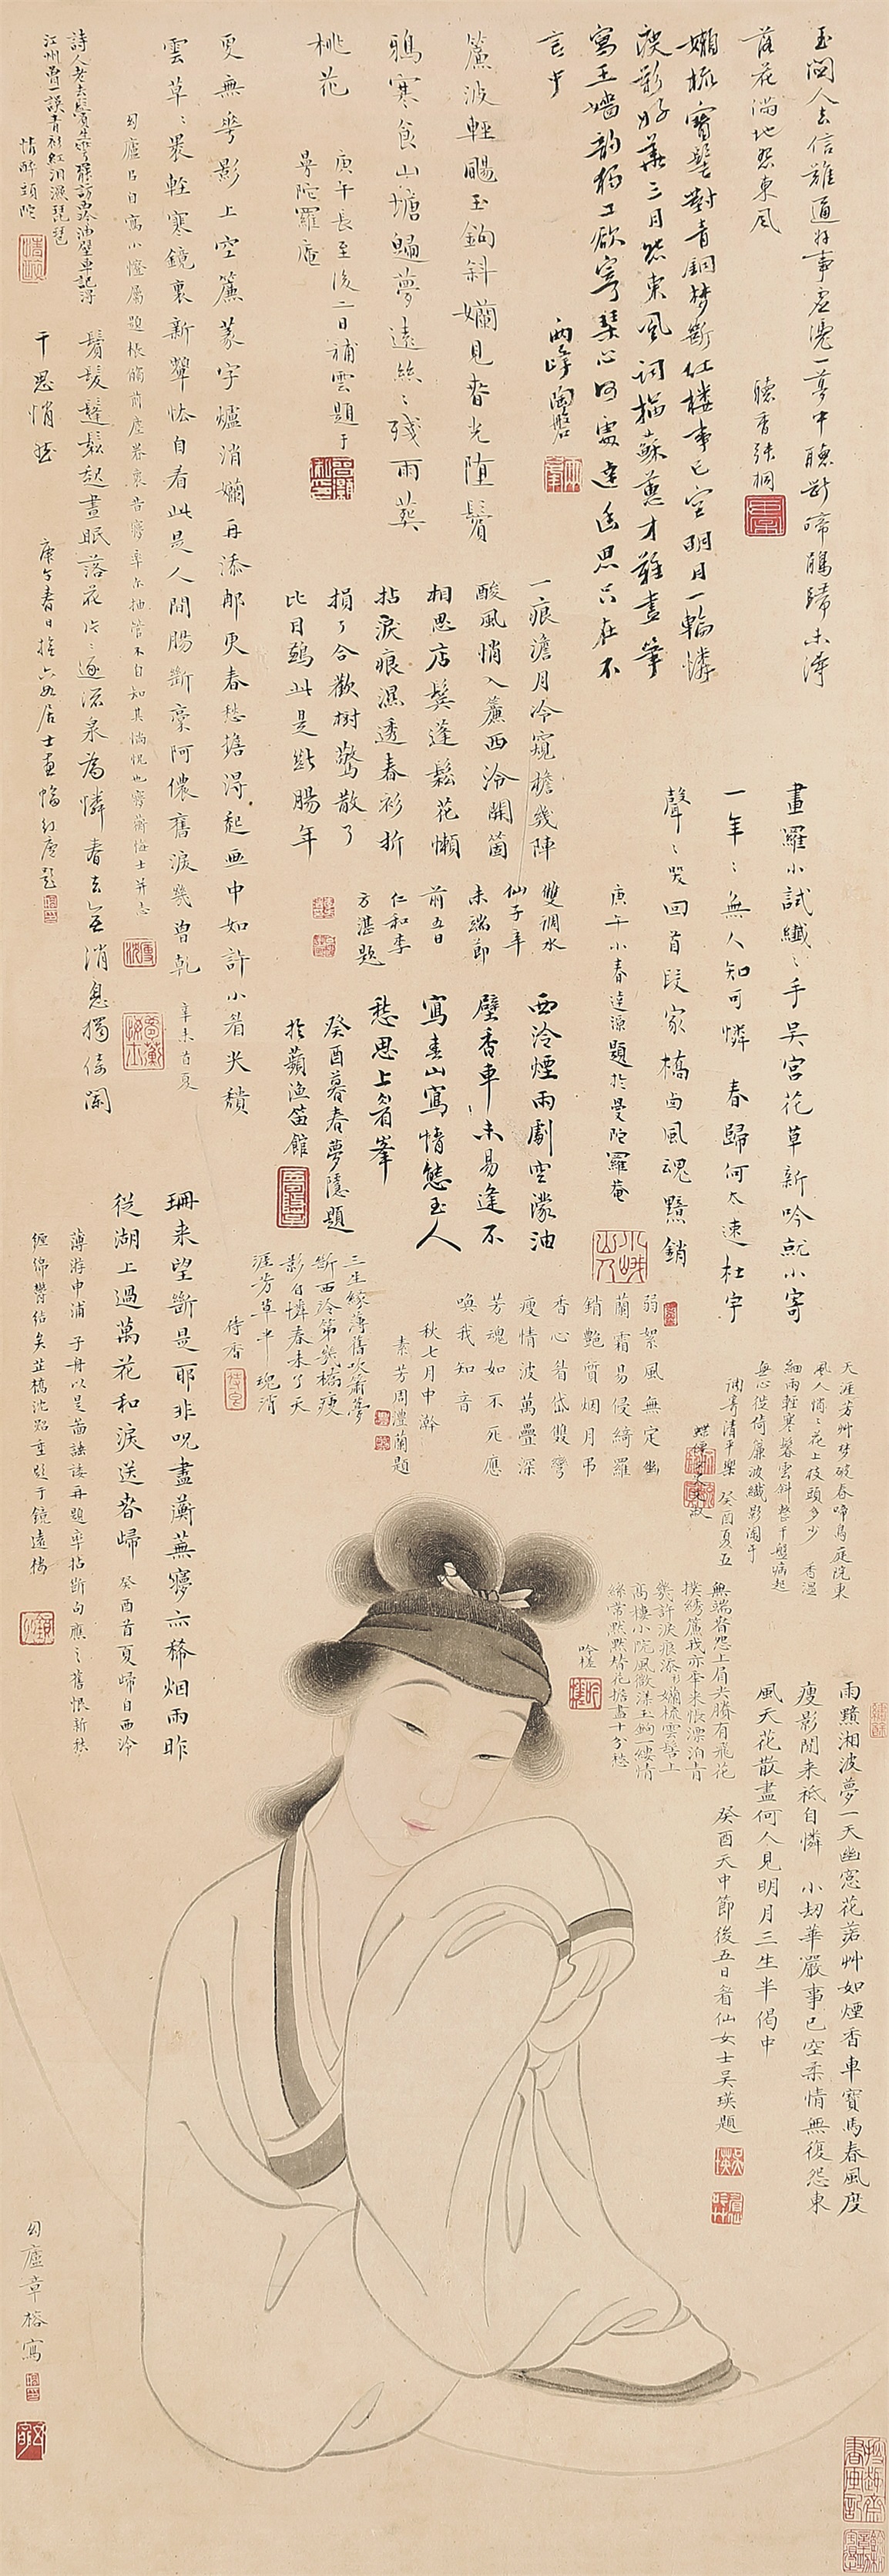 玉関人去信難通好事虛傳一夢中聽斷啼鵑歸未得
落花滿地怨東風
聽香張桐
嬾梳寶髻對青銅夢斷紅樓事已空明月一輪憐
瘦影好花三月咒東風詞描蘇蕙才難盡筆
寫王嬙韵獨工欲寄琴心何處達幽思只在不
言中
兩峰陶磐
簾波輕颺玉鉤斜嬾見春光墮鬢
鴉寒食山塘歸夢遠絲絲殘雨葬
桃花
庚午長至後二日補雲題于
曼陀羅庵
更無花影上空簾篆字爐消嬾再添郎更春愁擔得起畫中如許小眉尖
雲草草裳輕寒鏡裏新顰怯自看此是人間腸斷稾阿儂舊淚幾曾乾
辛未首夏
勾廬臣自寫小幢屬題悵觸前塵
詩人老去鬢
江州曾一誤青衫紅泪濺琵琶
情醉頭陀
鬢髮鬅鬆起晝眠落花片片逐流泉為憐春去無消息獨倚闌
干思悄然
庚午春日
居士
一痕澹月冷窺檐幾陣
酸風悄入簾西泠開箇
相思店鬢蓬鬆花懶
拈淚痕濕透春衫折
損了合歡樹驚散了
比目鶼此是斷腸年
雙調水
仙子辛
未端節
前五日
仁和李
方湛題
畫羅小試纖纖手吳宮花草新吟就小寄
一年年無人知可憐春歸何太速杜宇
聲聲哭回首段家橋西風魂黯銷
庚午小春達源題於曼陀羅菴
西泠煙雨劇空濛油
壁香車未易逢不
寫春山寫情態玉人
愁思上眉峯
癸酉暮春夢隱題
於蘋漁笛館
珊来望斷是耶非咒盡蘅蕪夢亦稀烟雨昨
從湖上過萬花和淚送春歸
癸酉首夏歸自西泠
薄游申浦子舟以是啚誃諉再題率拈斷句應之舊恨新愁
纏綿鬱結矣
重題于鏡遠樓
三生緣薄舊吹簫夢
斷西泠第幾橋瘦
影自憐春未了天
涯芳草半魂消
待香
弱絮風無定幽
蘭霜易侵綺羅
銷艷質烟月弔
香心眉岱雙彎
瘦情波萬疊深
芳魂如不死應
喚我知音
秋七月中澣
素芳周澧蘭題
天涯芳艸夢破春啼鳥庭院東
風人悄悄花上枝頭多少
香温
細雨輕寒鬢雲斜
病起
無心徙倚簾波纖影闌干
調寄清平樂
癸酉夏五
無端春怨上眉尖勝有飛花
撲繡簾我亦年来悵漂泊青
幾許淚痕添
嬾梳雲髻上
高樓小院風微漾玉鉤一縷情
絲常默默替花擔盡十分愁
吟槎
雨黯湘波夢一天幽窓花落艸如煙香車寶馬春風度
瘦影閒来祗自憐
小劫華嚴事已空柔情無復怨東
風天花散盡何人見明月三生半偈中
癸酉天中節後五日眉仙女士吳瑛題
勾廬章榕寫